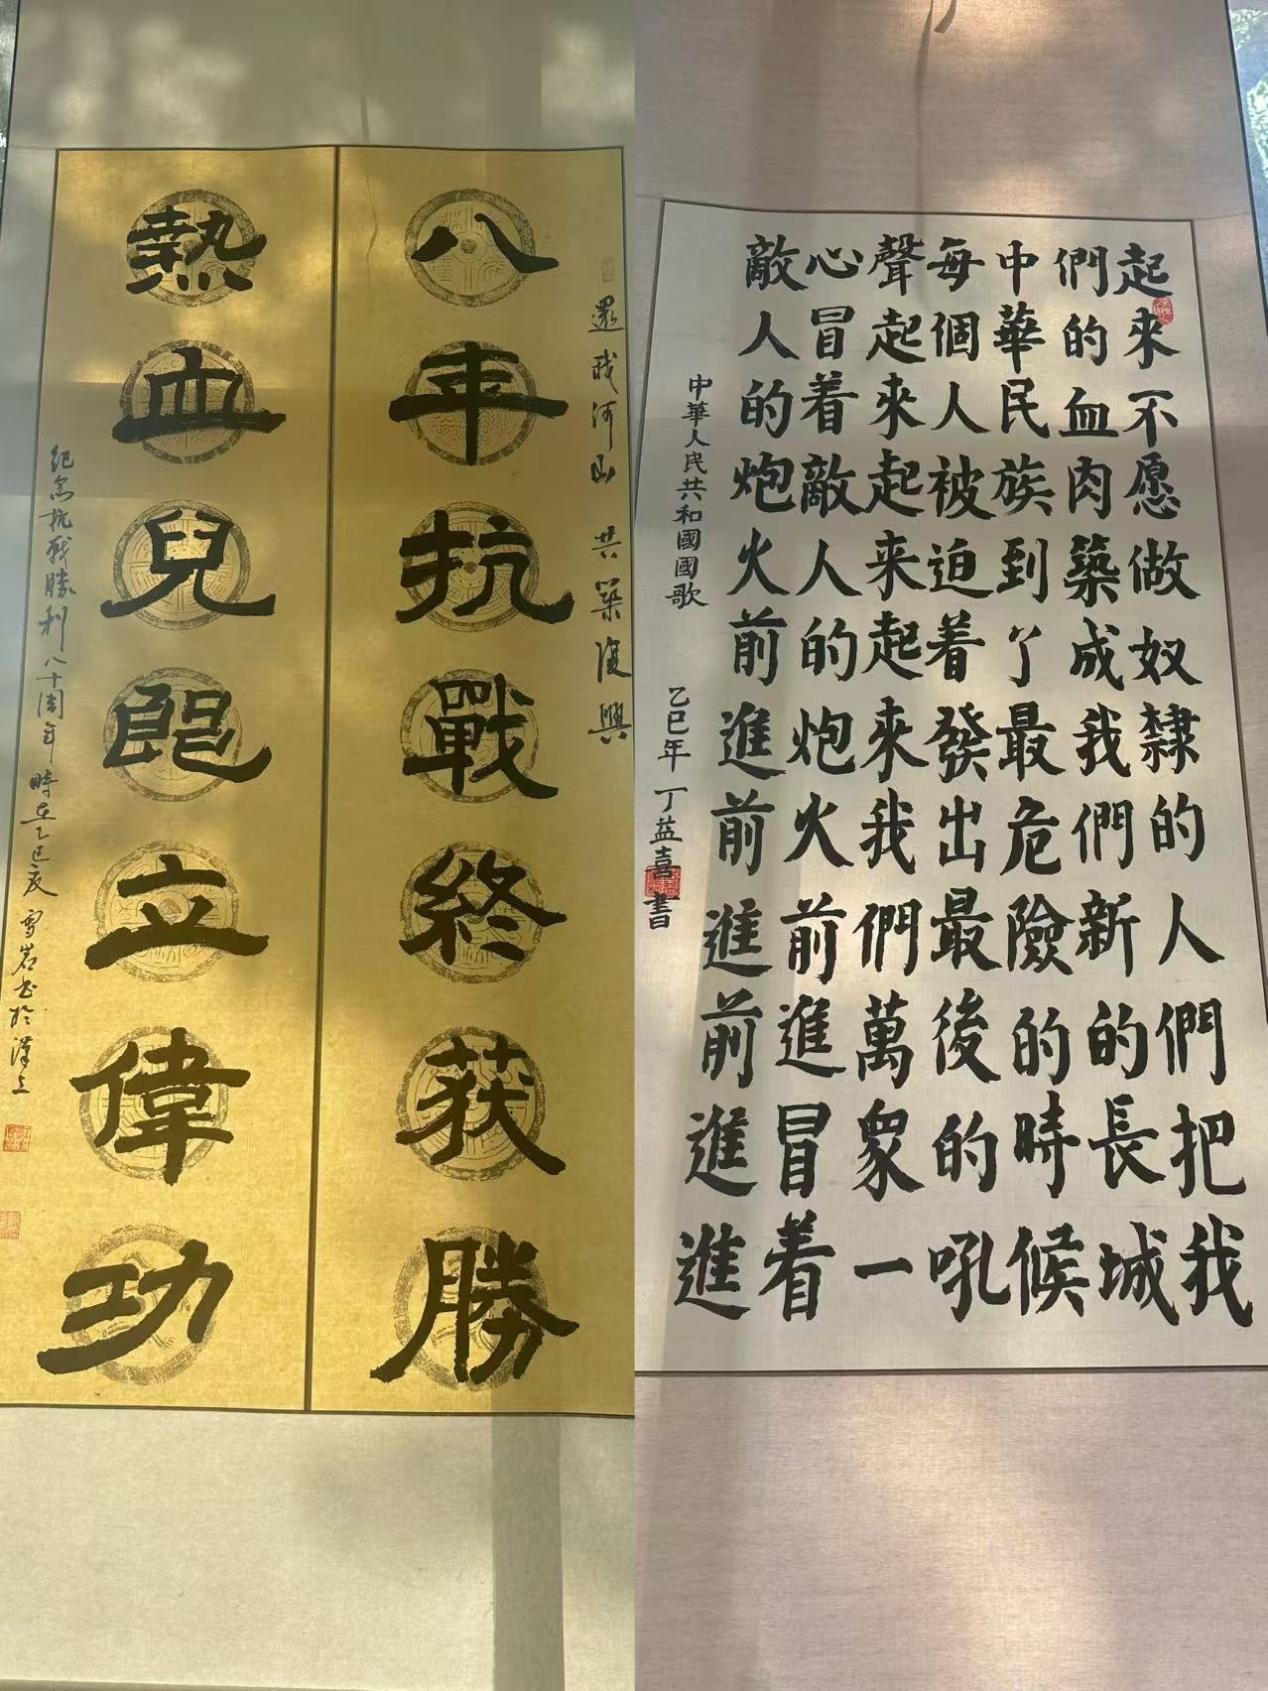 還我河山 共築復興
八年抗戰終获勝
熱血兒郎立偉功
紀念抗戰勝利八十周年時在乙巳夏 雪岩书於漢上
起來不愿做奴隸的人們把我
們的血肉築成我們新的長城
中華民族到了最危險的時候
每個人被迫着發出最後的吼
聲起來起来起來我們萬衆一
心冒着敵人的炮火前進冒着
敵人的炮火前進前進前進進
中華人民共和國國歌 乙巳年 丁益喜書